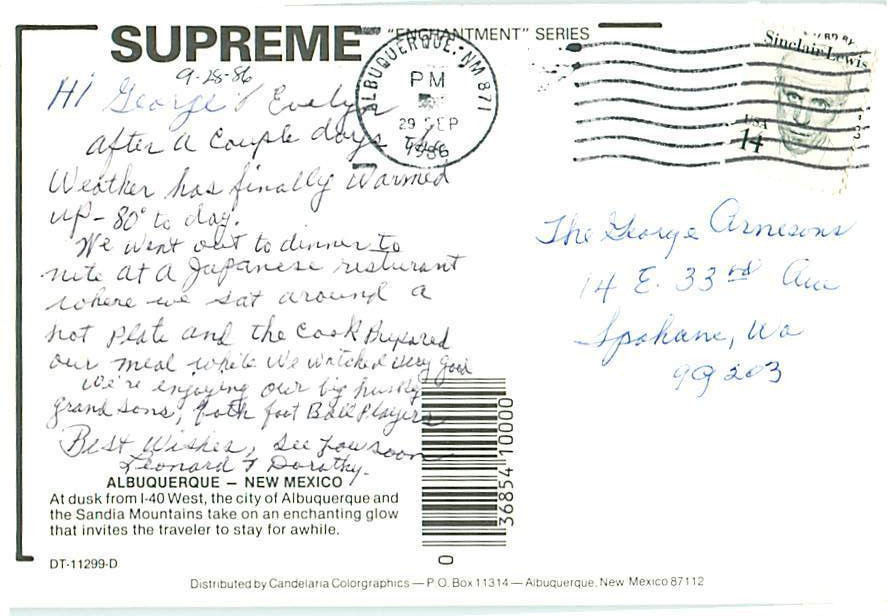 SUPREME "ENCHANTMENT" SERIES
9-28-86
Hi George & Evelyn
After a couple days the
Weather has finally warmed
up - 80° to day.
We went out to dinner to
nite at a Japanese resturant
where we sat around a
hot plate and the cook prepared
our meal while we watched very good
We're enjoying our big husky
grand sons, both foot Ball Players
Best Wishes, see you soon
Leonard & Dorothy.
ALBUQUERQUE – NEW MEXICO
At dusk from I-40 West, the city of Albuquerque and
the Sandia Mountains take on an enchanting glow
that invites the traveler to stay for awhile.
DT-11299-D
Distributed by Candelaria Colorgraphics — P.O. Box 11314 — Albuquerque, New Mexico 87112
36854 10000
0
ALBUQUERQUE, NM 871
PM
29 SEP
1986
Sinclair Lewis
USA
14
The George Arnesons
14 E. 33rd Ave
Spokane, Wa
99203